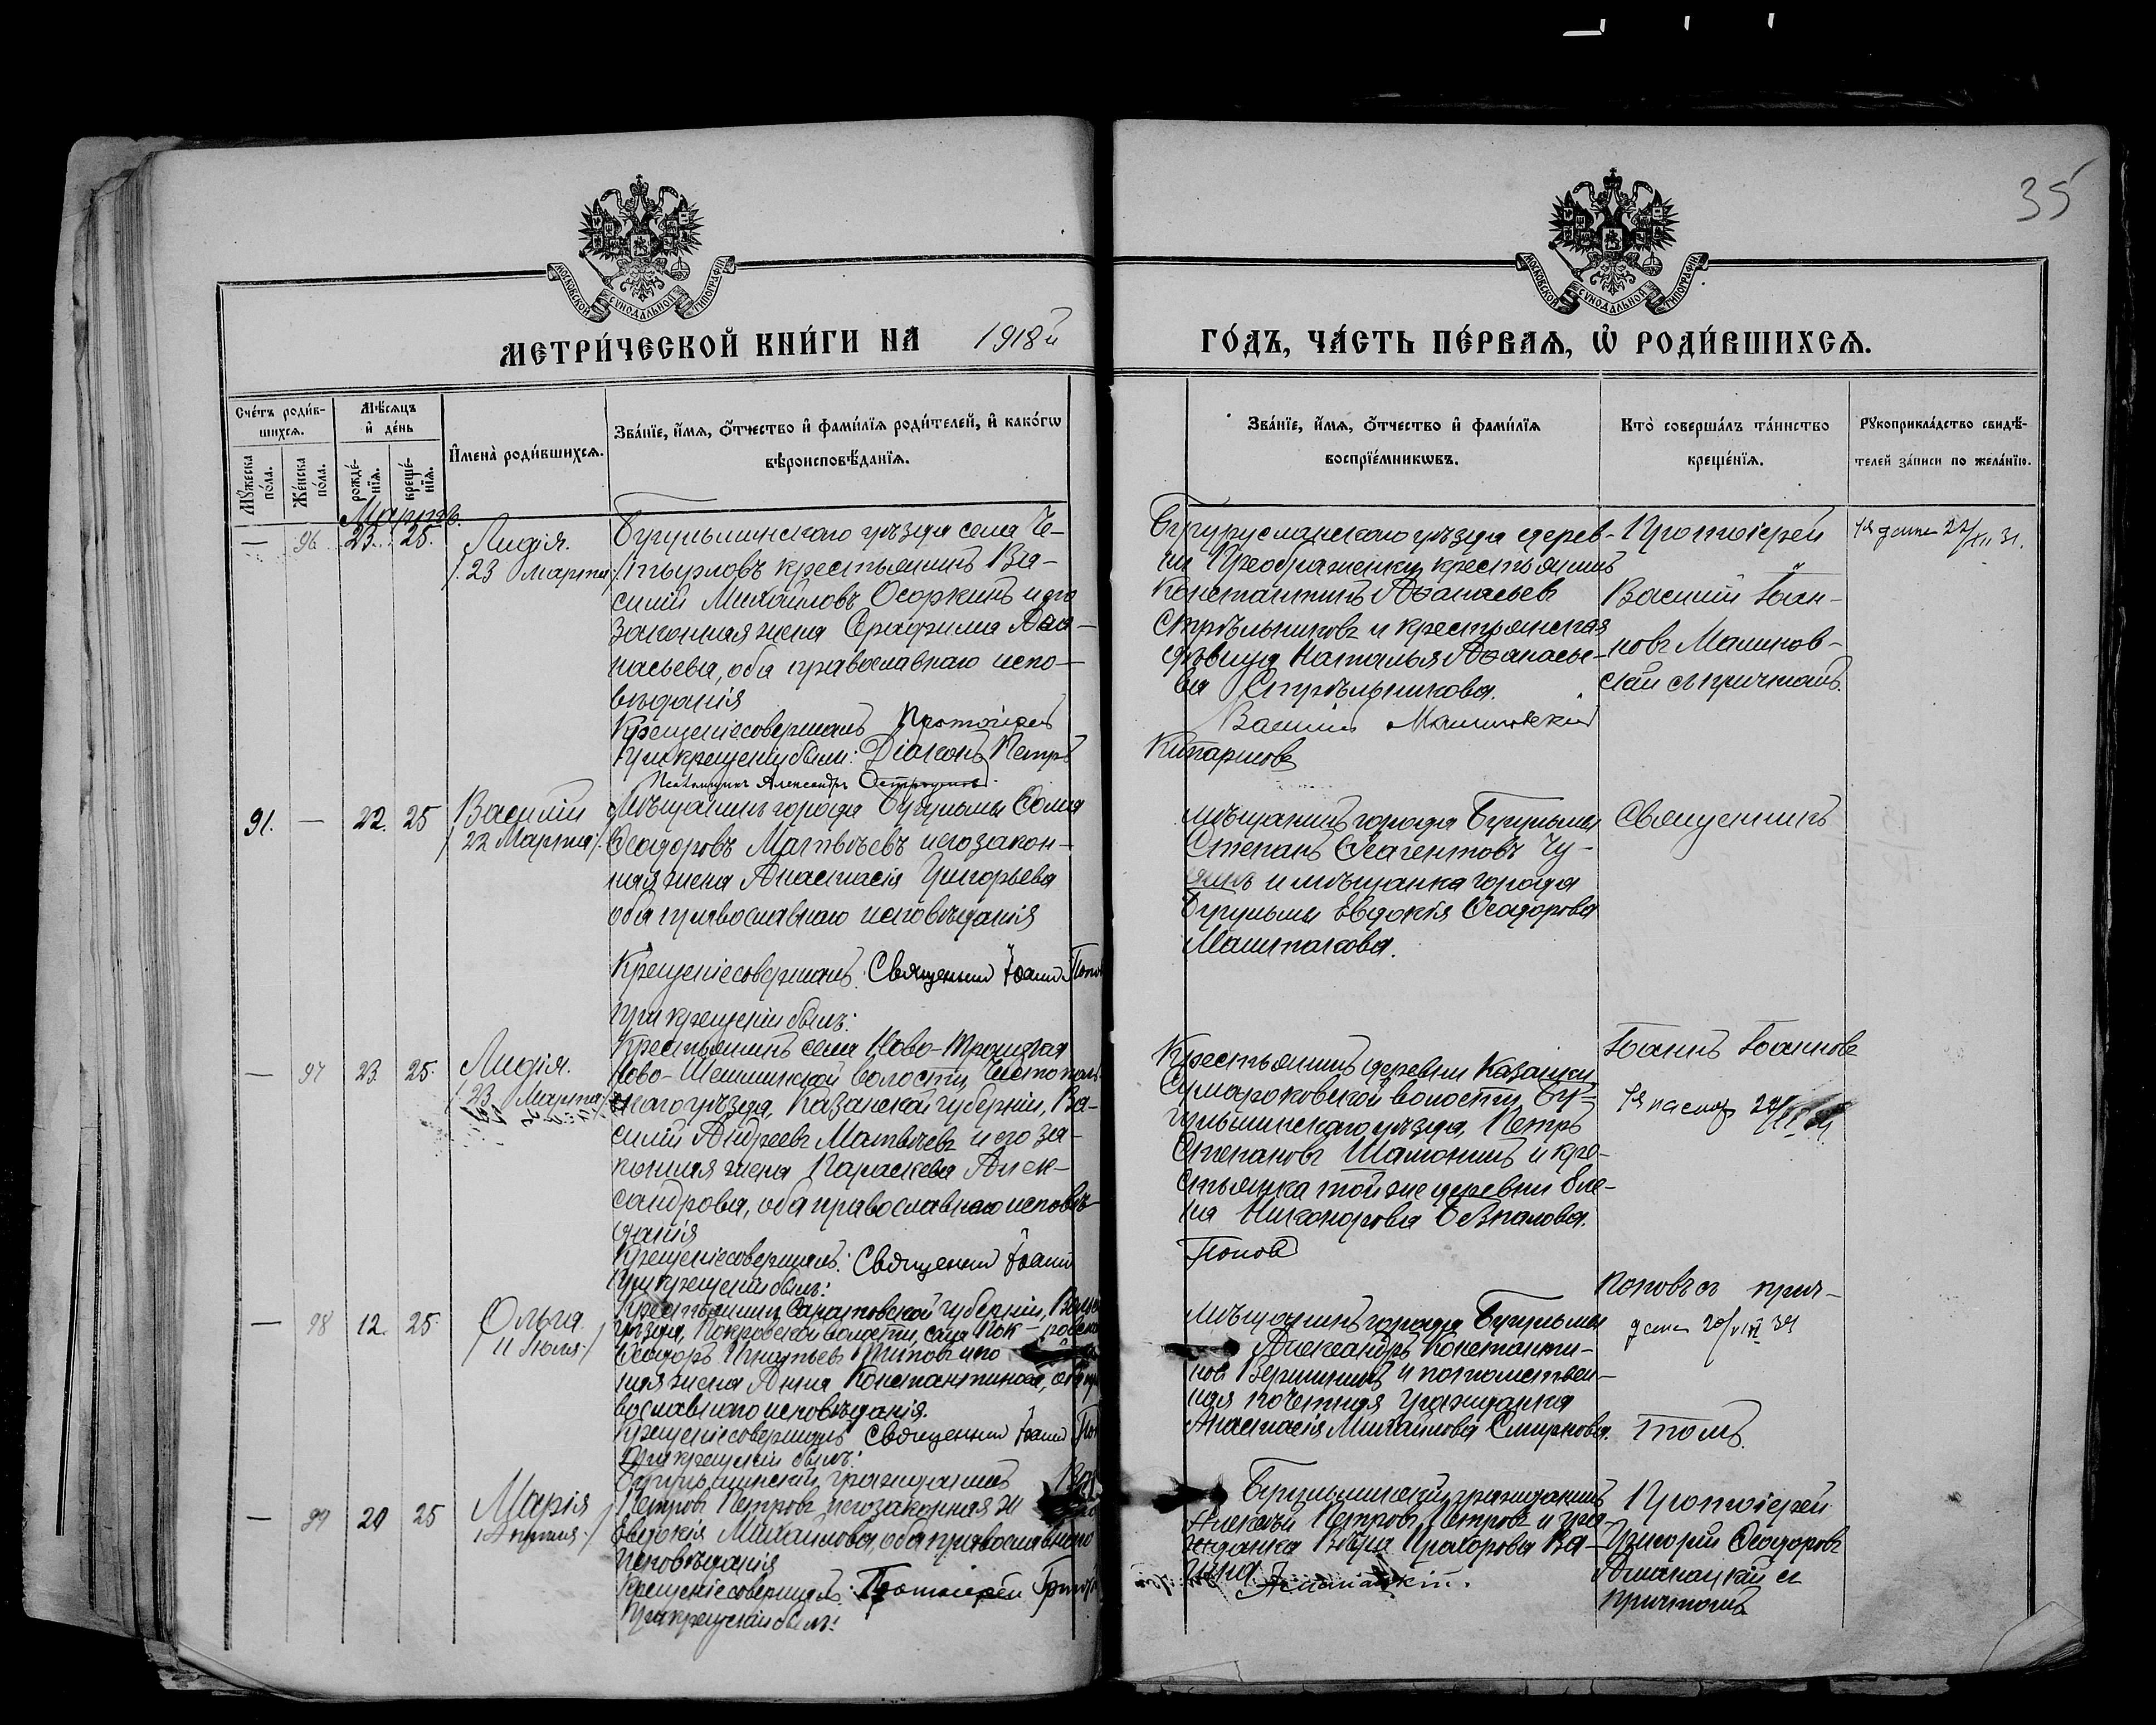 35
МОСКОВСКОЙ СУНОДАЛЬНОЙ ТИПОГРАФИИ
МОСКОВСКОЙ СУНОДАЛЬНОЙ ТИПОГРАФИИ
МЕТРИ́ЧЕСКОЙ КНИ́ГИ НА 1918й
ГО́ДЪ, ЧА́СТЬ ПЕ́РВАѦ, Ѡ҆ РОДИ́ВШИХСѦ.
Сче́тъ роди́в-
шихсѧ.
Мѹ́жеска по́ла.
Же́нска по́ла.
Мѣ́сѧцъ
и҆ де́нь
рожде́-
нїѧ.
креще́-
нїѧ.
И҆мена̀ роди́вшихсѧ.
Зва́нїе, и҆́мѧ, ѻ҆́тчество и҆ фами́лїѧ роди́телей, и҆ како́гѡ
вѣроисповѣ́данїѧ.
Зва́нїе, и҆́мѧ, ѻ҆́тчество и҆ фами́лїѧ
воспрїе́мникѡвъ.
Кто̀ соверша́лъ та́инство
креще́нїѧ.
Рꙋкоприкла́дство свидѣ́-
телей за́писи по жела́нїю.
Мартъ.
— 96. 23. 25.
Лидія.
/. 23 Марта ./
Бугульминскаго уѣзда села Че-
тырловъ крестьянинъ Ва-
силій Михайловъ Осоркинъ и его
законная жена Серафима Аѳа-
насьева, оба православнаго испо-
вѣданія
Крещеніе совершалъ Протоіерей
При крещеніи были: Діаконъ Петръ
Псаломщикъ Александръ
Бугурусланскаго уѣзда дерев-
ни Преображенки крестьянинъ
Константинъ Аѳанасьевъ
Стрѣльниковъ и крестьянская
дѣвица Наталья Аѳанасье-
ва Стрѣльникова.
Василій Малиновскій
Кипарисовъ
Протоіерей
Василій Іоан-
новъ Малинов-
скій съ причтомъ.
91. — 22. 25
Василій
/ 22 Марта ./
Мѣщанинъ города Бугульмы
Ѳеодоровъ Матвѣевъ и его закон-
ная жена Анастасія Григорьева
оба православнаго исповѣданія
Крещеніе совершалъ: Священникъ Іоаннъ Попов
При крещеніи былъ:
Мѣщанинъ города Бугульмы
Степанъ
и мѣщанка города
Бугульмы Евдокія Ѳеодорова
Машталова.
Священникъ
— 97 23. 25.
Лидія.
/ 23 Марта /
Крестьянинъ села Ново-Троицкая
Ново-Шешминской волости, Чистополь-
скаго уѣзда, Казанской губерніи, Ва-
силій Андреевъ Матвѣевъ и его за-
конная жена Параскева Алек-
сандрова, оба православнаго исповѣ-
данія
Крещеніе совершалъ: Священникъ Іоаннъ
При крещеніи былъ:
Крестьянинъ деревни Казанки
Сумароковской волости, Бу-
гульминскаго уѣзда, Петръ
Степановъ Шамонинъ и кре-
стьянка той же деревни Еле-
на Никанорова
Поповъ
Іоаннъ Іоанновъ
— 98 12. 25.
Ольга.
/ 11 Іюля /
Крестьянинъ Саратовской губерніи,
уѣзда, Покровской волости, села
Ѳеодоръ Игнатьевъ Титовъ и его
ная жена Анна Константинова,
вославнаго исповѣданія.
Крещеніе совершалъ Священникъ Іоаннъ
При крещеніи былъ:
Мѣщанинъ города Бугульмы
Александръ Константи-
новъ Вершининъ и потомствен-
ная почетная гражданка
Анастасія Михайлова Смирнова.
Поповъ съ прич-
томъ.
— 99 20 25
Марія
1 Апрѣля ./
Бугульминскій гражданинъ
Петровъ Петровъ, и его законная
Евдокія Михайлова, оба православнаго
исповѣданія
Крещеніе совершалъ: Протоіерей Григорій
При крещеніи былъ:
Бугульминскій гражданинъ
Алексѣй Петровъ Петровъ и гра-
жданка Вѣра Прохорова Ва-
Протоіерей
Григорій Ѳеодоровъ
съ
причтомъ